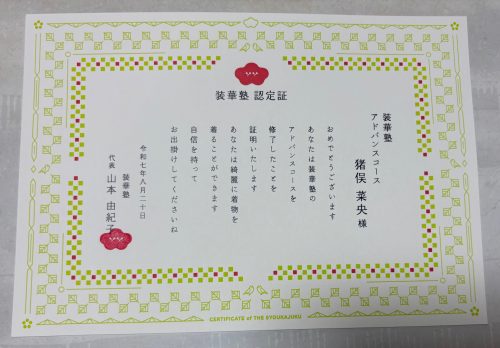 装華塾 認定証
装華塾
アドバンスコース
猪俣 菜央 様
おめでとうございます
あなたは装華塾の
アドバンスコースを
修了したことを
証明いたします
あなたは綺麗に着物を
着ることができます
自信を持って
お出掛けしてくださいね
令和七年八月二十日
装華塾
代表 山本 由紀子
CERTIFICATE of THE SYOUKAJUKU